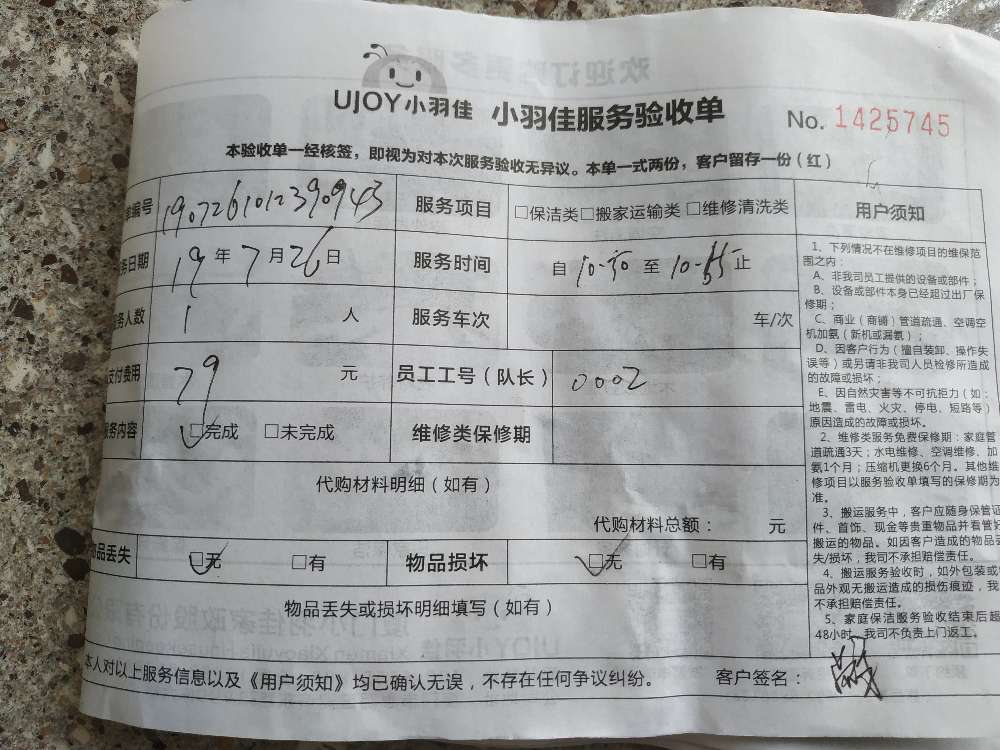 UJOY小羽佳 小羽佳服务验收单 No. 1425745
本验收单一经核签，即视为对本次服务验收无异议。本单一式两份，客户留存一份（红）
编号 190726101239094 服务项目 □保洁类□搬家运输类□维修清洗类
日期 19 年 7 月 26 日 服务时间 自 10-30 至 止
务人数 1 人 服务车次 车/次
支付费用 79 元 员工工号（队长） 0002
服务内容 □完成 □未完成 维修类保修期
代购材料明细（如有）
代购材料总额： 元
物品丢失 □无 □有 物品损坏 □无 □有
物品丢失或损坏明细填写（如有）
本人对以上服务信息以及《用户须知》均已确认无误，不存在任何争议纠纷。 客户签名：
用户须知
1、下列情况不在维修项目的维保范
围之内：
A、非我司员工提供的设备或部件；
B、设备或部件本身已经超过出厂保
修期；
C、商业（商铺）管道疏通、空调空
机加氨（新机或漏氨）；
D、因客户行为（擅自装卸、操作失
误等）或另请非我司人员检修所造成
的故障或损坏；
E、因自然灾害等不可抗拒力（如：
地震、雷电、火灾、停电、短路等）
原因造成的故障或损坏。
2、维修类服务免费保修期：家庭管
道疏通3天；水电维修、空调维修、加
氨1个月；压缩机更换6个月。其他维
修项目以服务验收单填写的保修期为
准。
3、搬运服务中，客户应随身保管证
件、首饰、现金等贵重物品并看管好
搬运的物品。如因客户造成的物品丢
失/损坏，我司不承担赔偿责任。
4、搬运服务验收时，如外包装或
品外观无搬运造成的损伤痕迹，我
不承担赔偿责任。
5、家庭保洁服务验收结束后超
48小时，我司不负责上门返工。